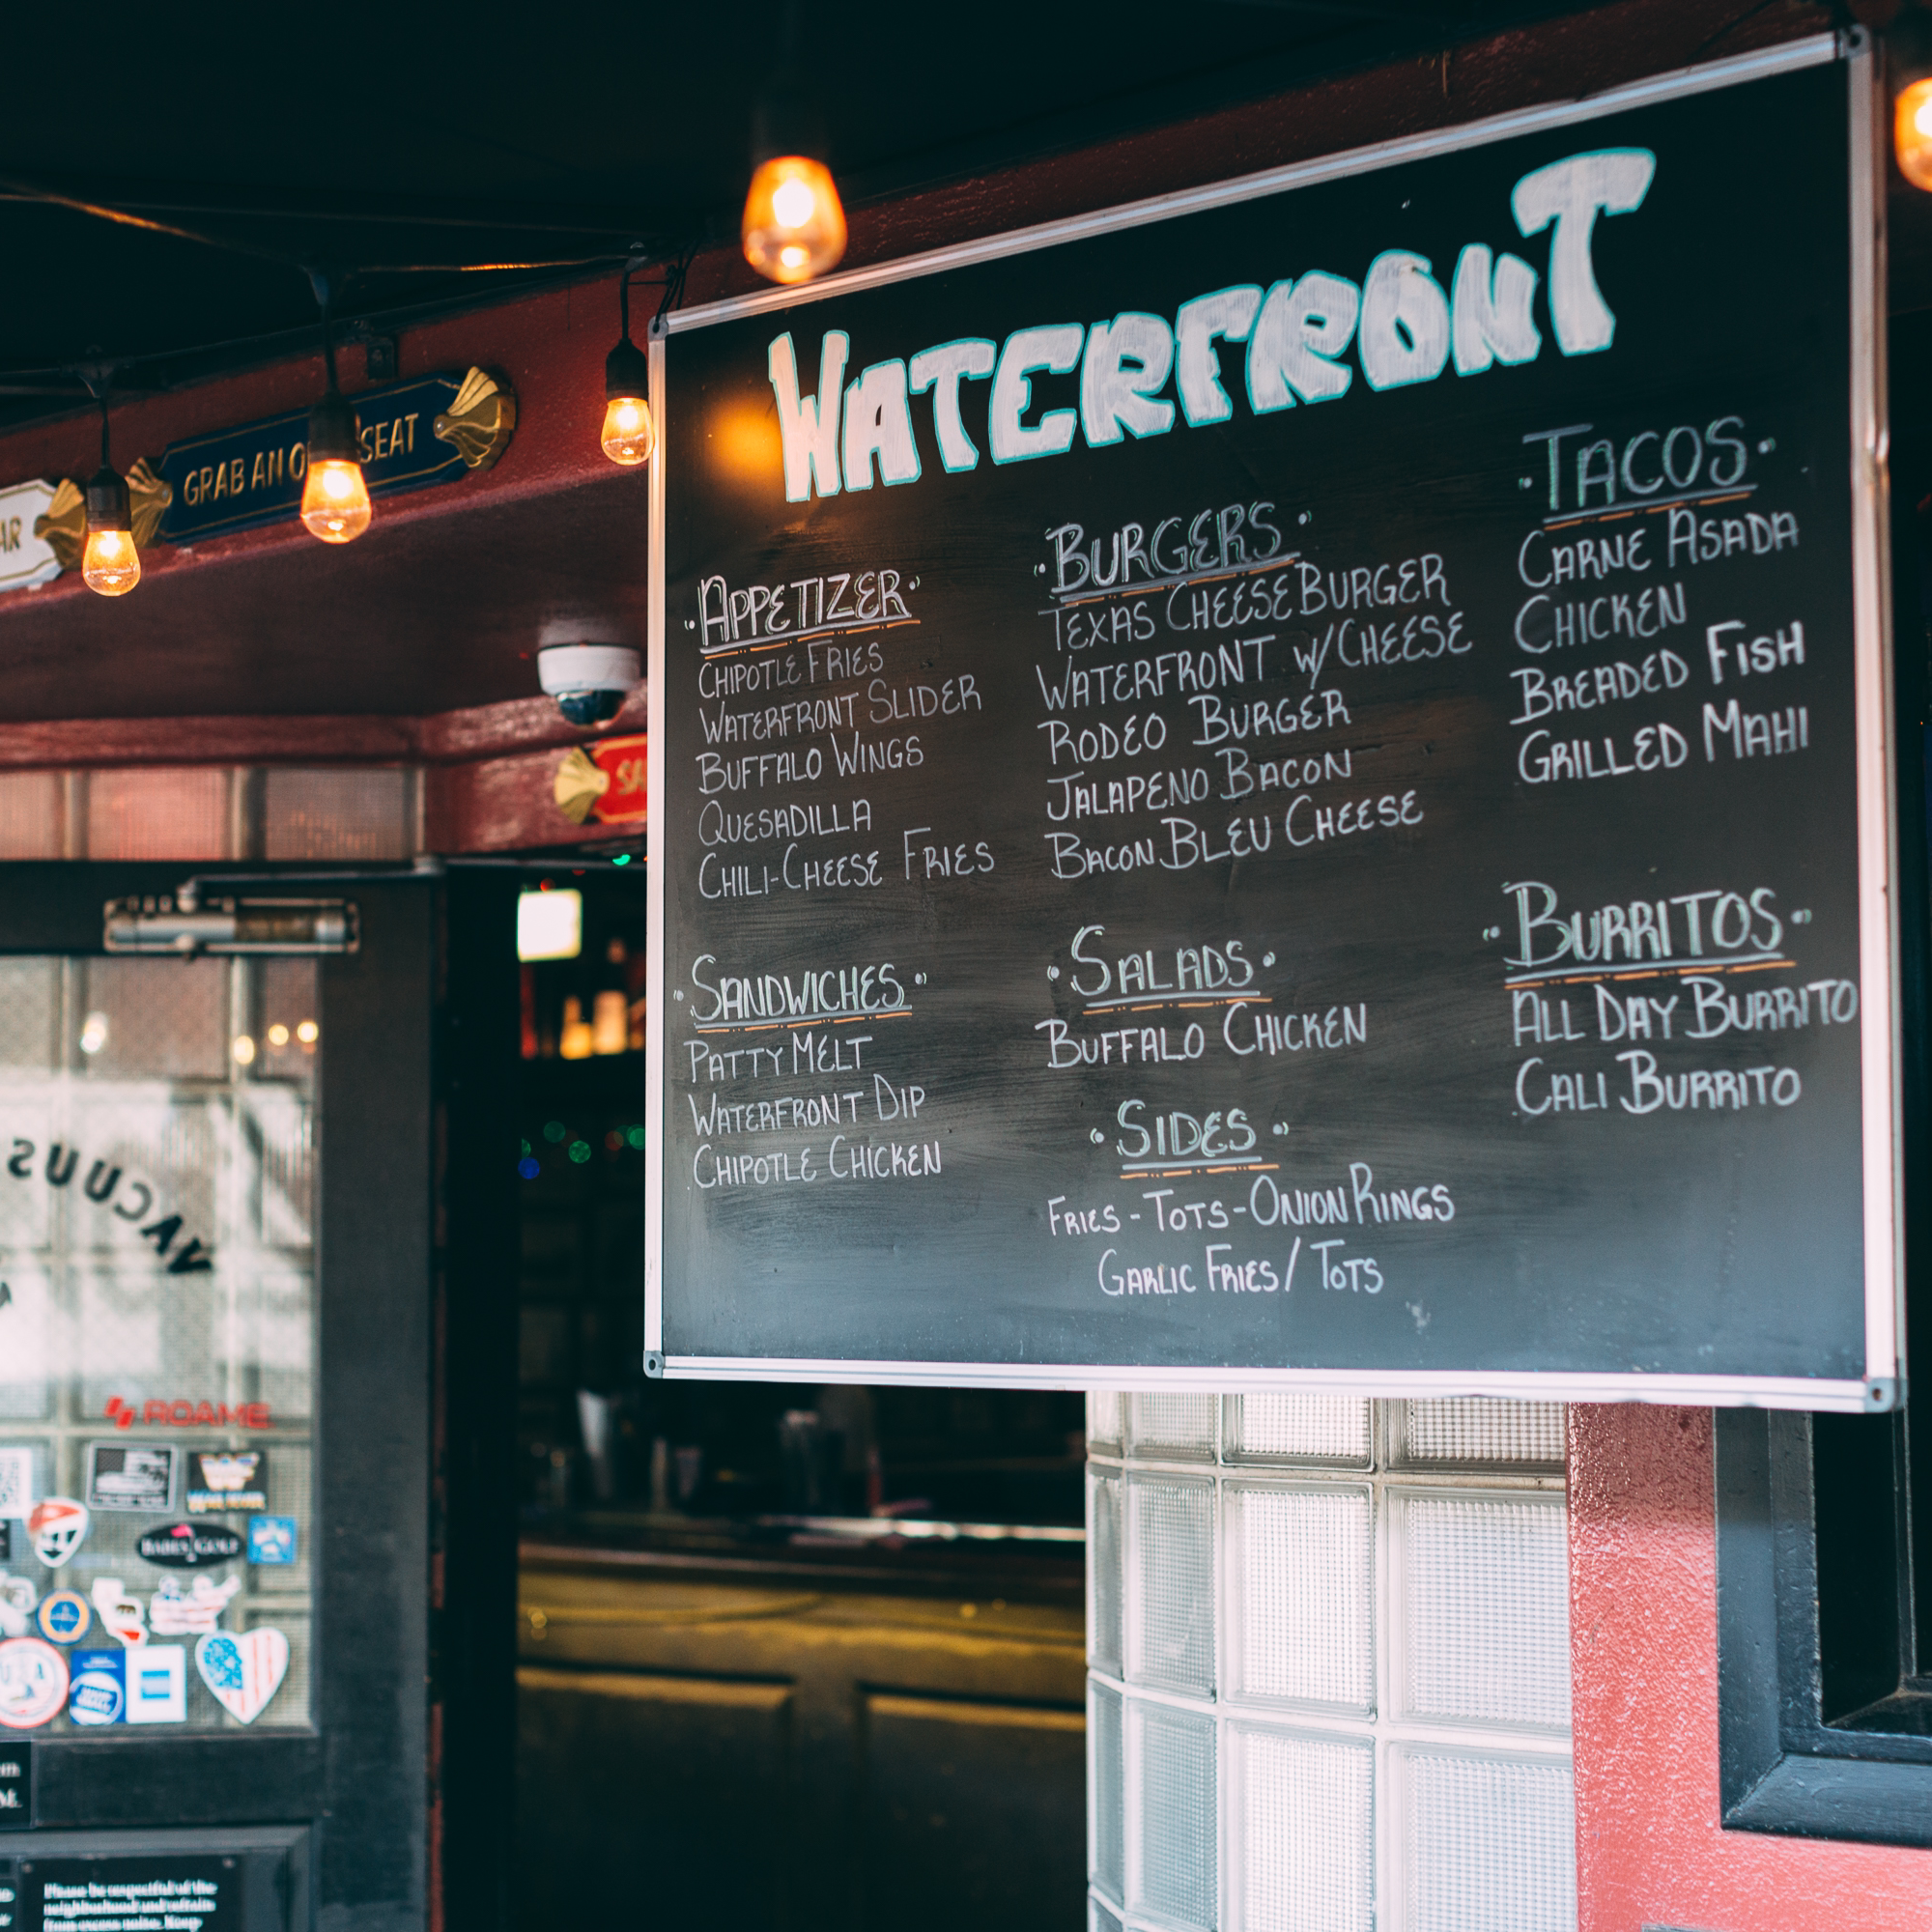 WATERFRONT
APPETIZER
CHIPOTLE FRIES
WATERFRONT SLIDER
BUFFALO WINGS
QUESADILLA
CHILI-CHEESE FRIES
SANDWICHES
PATTY MELT
WATERFRONT DIP
CHIPOTLE CHICKEN
BURGERS
TEXAS CHEESEBURGER
WATERFRONT W/CHEESE
RODEO BURGER
JALAPENO BACON
BACON BLEU CHEESE
SALADS
BUFFALO CHICKEN
SIDES
FRIES - TOTS - ONION RINGS
GARLIC FRIES / TOTS
TACOS
CARNE ASADA
CHICKEN
BREADED FISH
GRILLED MAHI
BURRITOS
ALL DAY BURRITO
CALI BURRITO
GRAB AN SEAT
ROAME
Please be respectful of the
neighborhood and refrain
from excess noise. Keep